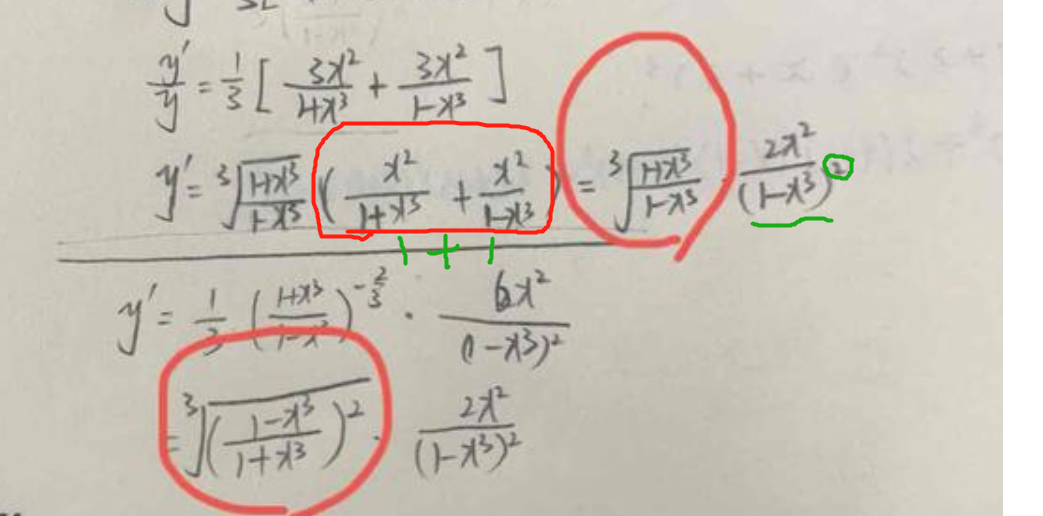 y'/y = 1/3 [ 3x²/(1+x³) + 3x²/(1-x³) ]
y' = ³√((1+x³)/(1-x³)) ( x²/(1+x³) + x²/(1-x³) ) = ³√((1+x³)/(1-x³)) · 2x²/(1-x³)²
1 + 1
y' = 1/3 ((1+x³)/(1-x³))^(-2/3) · 6x²/(1-x³)²
= ³√(((1-x³)/(1+x³))²) · 2x²/(1-x³)²